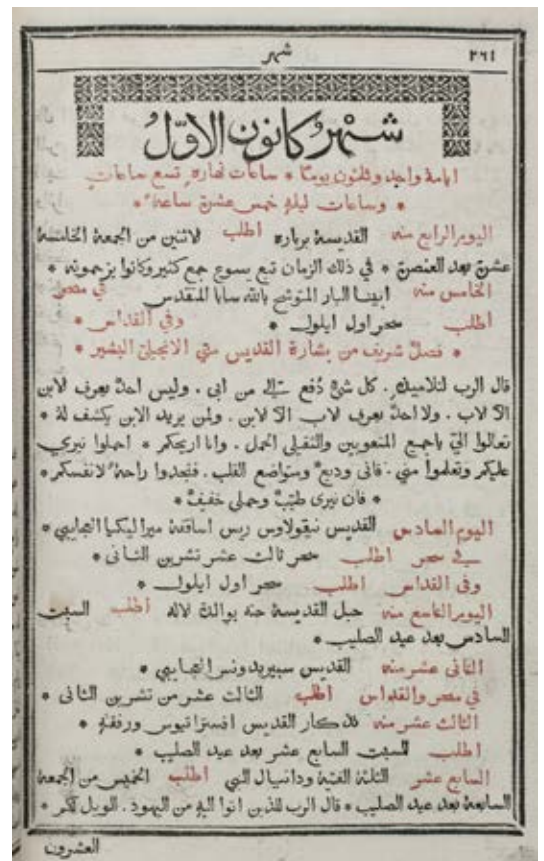 شهر ٢٦١
شهر كانون الاول
ايامهُ واحد وثلثون يومًا * ساعات نهاره تسع ساعات
* وساعات ليله خمس عشرة ساعة *
اليوم الرابع منه القديسة برباره اطلب لاثنين من الجمعة الخامسة
عشرة بعد العنصرة * في ذلك الزمان تبع يسوع جمع كثير وكانوا يزحمونه *
الخامس منه ابينا البار المتوشح بالله سابا المتقدس في سحر
اطلب سحر اول ايلول * وفي القداس *
* فصلٌ شريف من بشارة القديس متي الانجيلي البشير *
قال الرب لتلاميذه . كل شيٍ دُفع الي من ابي . وليس احدٌ يعرف لابن
الا لاب . ولا احدٌ يعرف لاب الا لابن . ولمن يريد الابن يكشف لهُ *
تعالوا اليّ ياجميع المتعوبين والثقيلي الحمل . وانا اريحكم * احملوا نيري
عليكم وتعلموا مني . فاني وديعٌ ومتواضع القلب . فتجدوا راحةً لانفسكم *
* فان نيري طيّبٌ وحملي خفيفٌ *
اليوم السادس القديس نيقولاوس ريس اساقفة ميرا ليكيا العجايبي *
في سحر اطلب سحر ثالث عشر تشرين الثاني *
وفي القداس اطلب سحر اول ايلول *
اليوم التاسع منه حبل القديسة حنه بوالدة لاله اطلب السبت
السادس بعد عيد الصليب *
الثاني عشر منه القديس سبيريدونس العجايبي *
في سحر والقداس اطلب الثالث عشر من تشرين الثاني *
الثالث عشر منه تذكار القديس افستراتيوس ورفقته *
اطلب السبت السابع عشر بعد عيد الصليب *
السابع عشر الثلثة الفتية ودانيال النبي اطلب الخميس من الجمعة
السابعة بعد عيد الصليب * قال الرب للذين اتوا اليه من اليهود . الويل لكم *
العشرون